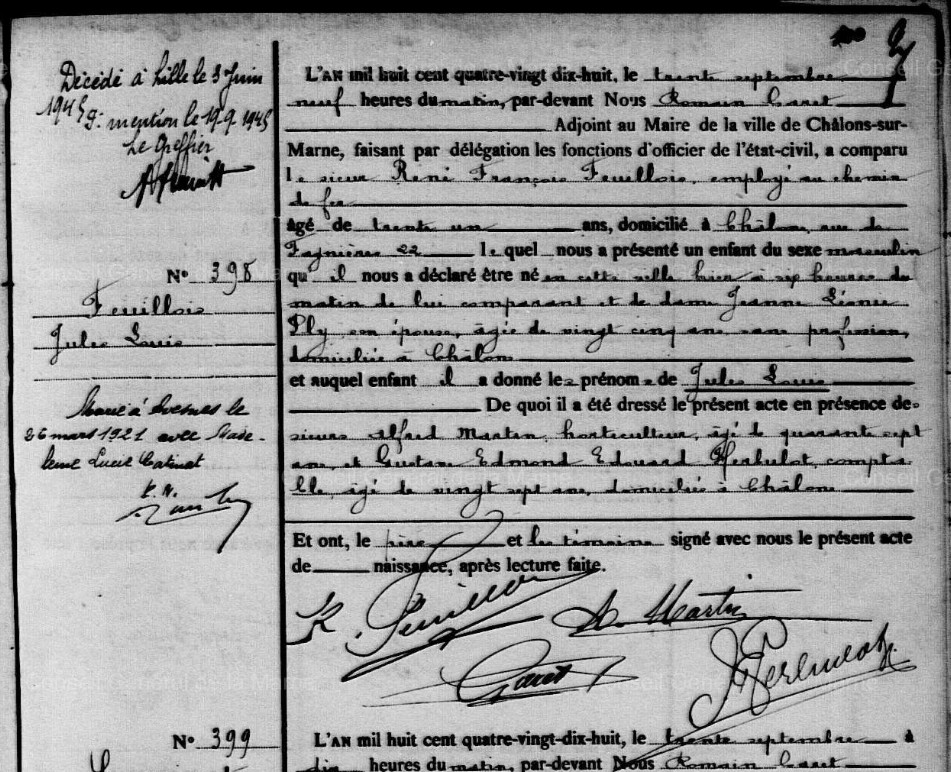 Décédé à Lille le 3 Juin
1945 S: mention le 19.9.1945
Le Greffier
No 398
Feuillois
Jules Louis
Marié à Avesnes le
26 mars 1921 avec Made-
leine Lucie Catinat
L'AN mil huit cent quatre-vingt dix-huit, le trente septembre à
neuf heures du matin, par-devant Nous Romain Caret
Adjoint au Maire de la ville de Châlons-sur-
Marne, faisant par délégation les fonctions d'officier de l'état-civil, a comparu
le sieur René François Feuillois, employé au chemin
de fer
âgé de trente un ans, domicilié à Châlons, rue de
Fagnières 22 lequel nous a présenté un enfant du sexe masculin
qu'il nous a déclaré être né en cette ville hier à six heures du
matin de lui comparant et de dame Jeanne
Ply son épouse, âgée de vingt cinq ans sans profession,
domiciliée à Châlons
et auquel enfant il a donné les prénoms de Jules Louis
De quoi il a été dressé le présent acte en présence de
sieurs Alfred Martin, horticulteur, âgé de quarante sept
ans, et Gustave Edmond Edouard Herbulot, compta
ble, âgé de vingt sept ans, domiciliés à Châlons
Et ont, le père et les témoins signé avec nous le présent acte
de naissance, après lecture faite.
R. Feuillois A. Martin
Caret Herbulot
No 399
L'AN mil huit cent quatre-vingt-dix-huit, le trente septembre à
dix heures du matin, par-devant Nous Romain Caret